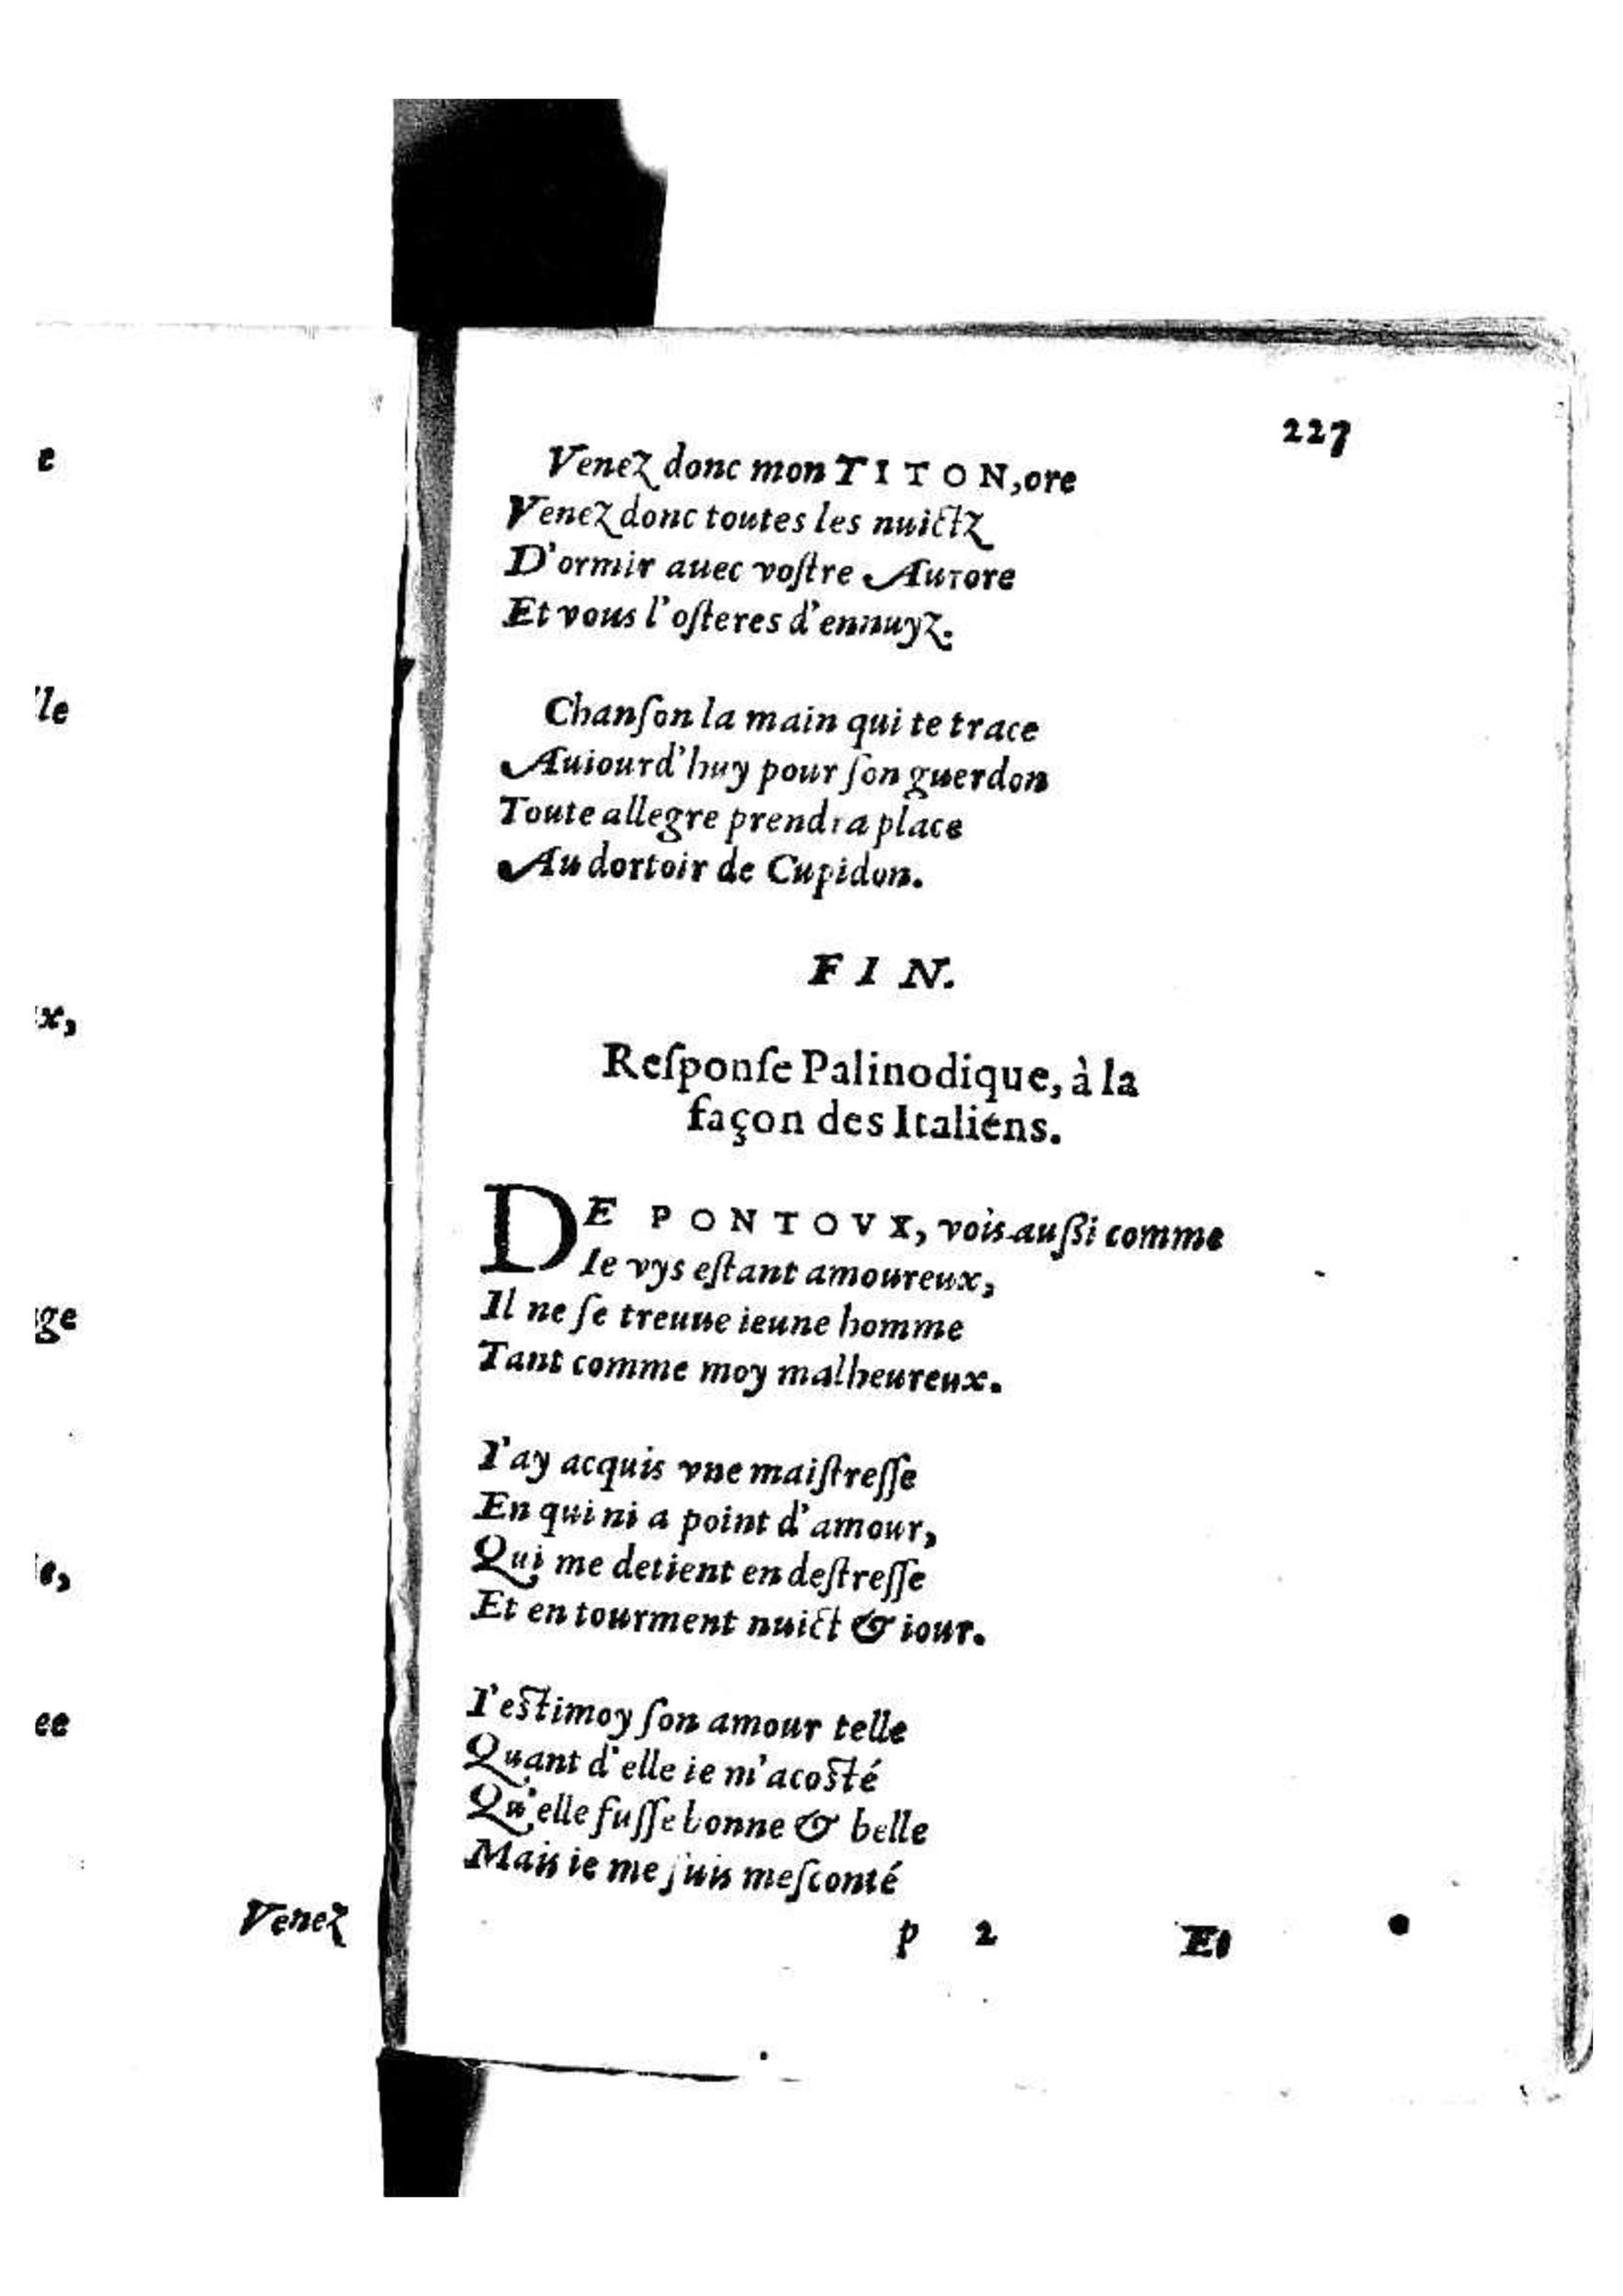 e
lle
x,
ge
e,
ee
Venez
227
Venez donc mon TITON, ore
Venez donc toutes les nuictz
D'ormir auec voſtre Aurore
Et vous l'oſteres d'ennuyz.
Chanſon la main qui te trace
Auiourd'huy pour ſon guerdon
Toute allegre prendra place
Au dortoir de Cupidon.
FIN.
Reſponſe Palinodique, à la
façon des Italiens.
DE PONTOVX, vois auſſi comme
Ie vys eſtant amoureux,
Il ne ſe treuue ieune homme
Tant comme moy malheureux.
I'ay acquis vne maiſtreſſe
En qui ni a point d'amour,
Qui me detient en deſtreſſe
Et en tourment nuict & iour.
I'eſtimoy ſon amour telle
Quant d'elle ie m'acoſté
Qu'elle fuſſe bonne & belle
Mais ie me ſuis meſconté
p 2
Et